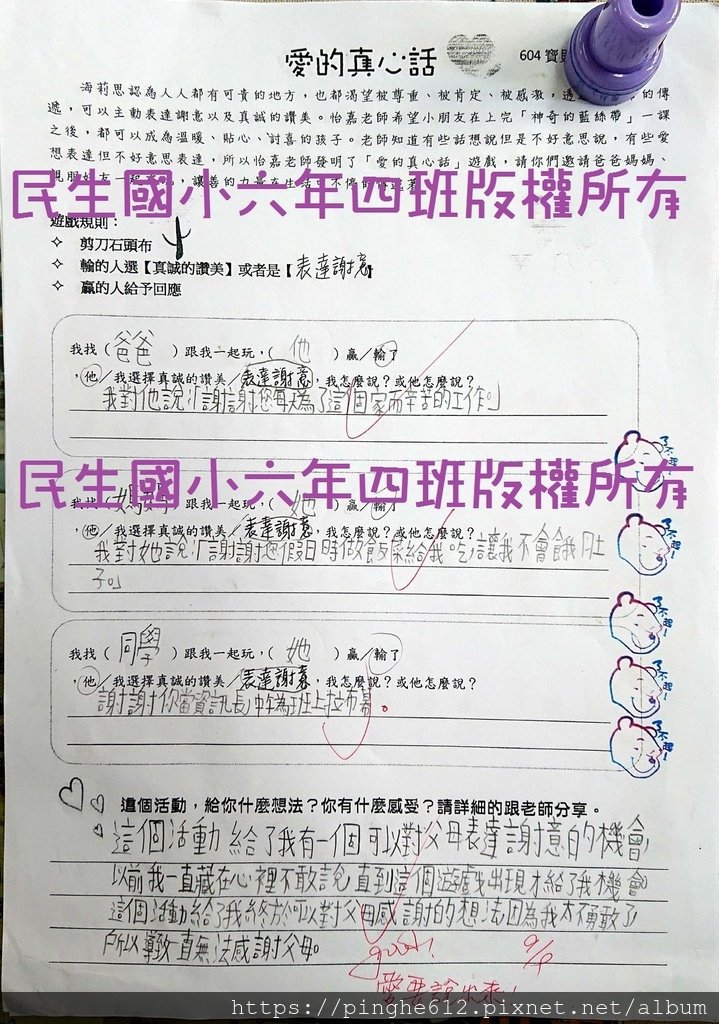 愛的真心話
604 寶
海莉思認為人人都有可貴的地方，也都渴望被尊重、被肯定、被感激，透 的傳
遞，可以主動表達謝意以及真誠的讚美。怡嘉老師希望小朋友在上完「神奇的藍絲帶」一課
之後，都可以成為溫暖、貼心、討喜的孩子。老師知道有些話想說但是不好意思說，有些愛
想表達但不好意思表達，所以怡嘉老師發明了「愛的真心話」遊戲，請你們邀請爸爸媽媽、
讓善的力量在生活中不停的
民生國小六年四班版權所有
遊戲規則：
✧ 剪刀石頭布
✧ 輸的人選【真誠的讚美】或者是【表達謝意】
✧ 贏的人給予回應
我找（爸爸）跟我一起玩，（他）贏／輸了
，他／我選擇真誠的讚美／表達謝意，我怎麼說？或他怎麼說？
我對他說：「謝謝您每天為了這個家而辛苦的工作。」
了不起！
民生國小六年四班版權所有
我找（媽媽）跟我一起玩，（她）贏／輸了
，他／我選擇真誠的讚美／表達謝意，我怎麼說？或他怎麼說？
我對她說：「謝謝您假日時做飯菜給我吃，讓我不會餓肚
子。」
了不起！
了不起！
我找（同學）跟我一起玩，（她）贏／輸了
，他／我選擇真誠的讚美／表達謝意，我怎麼說？或他怎麼說？
謝謝你當資訊長，中午為班上拉布幕。
了不起！
了不起！
這個活動，給你什麼想法？你有什麼感受？請詳細的跟老師分享。
這個活動給了我有一個可以對父母表達謝意的機會，
以前我一直藏在心裡不敢說，直到這個遊戲出現才給了我機會。
這個活動給了我終於可以對父母感謝的想法，因為我太不勇敢了，
所以導致一直無法感謝父母。
good!
9/4
愛要說出來！
https://pinghe612.pixnet.net/album